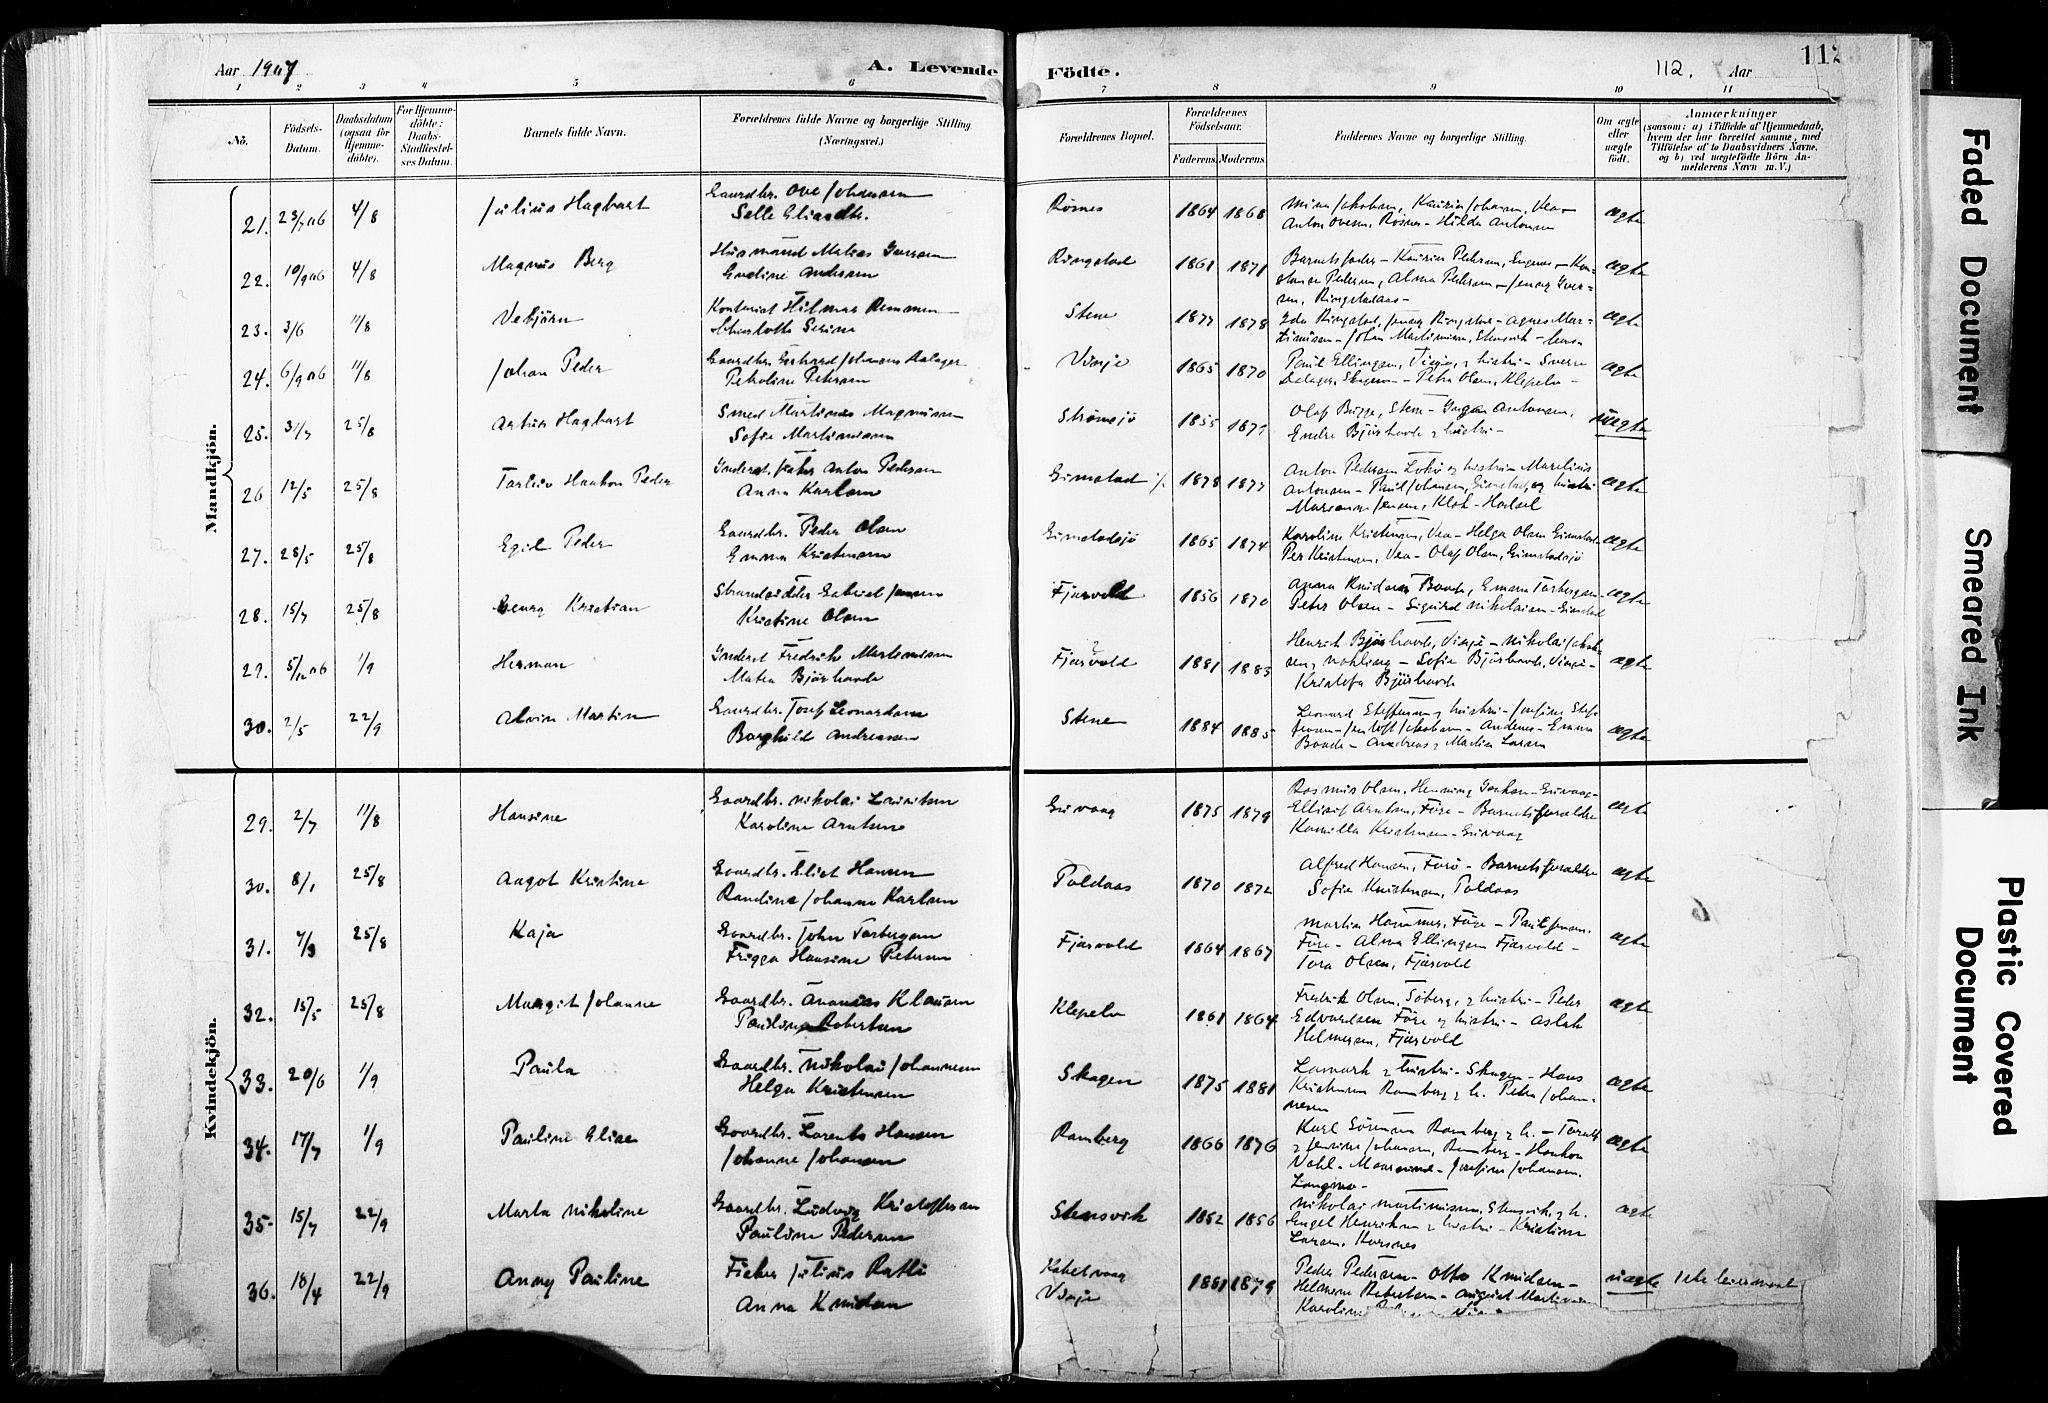 Aar 1907
A. Levende Födte.
112. Aar
112
1 2 3 4 5 6 7 8 9 10 11
No.
Födsels-Datum.
Daabsdatum (ogsaa for Hjemme-döbte).
For Hjemme-döbte: Daabs-Stadfæstel-ses Datum.
Barnets fulde Navn.
Forældrenes fulde Navne og borgerlige Stilling (Næringsvei.)
Forældrenes Bopæl.
Forældrenes Födselsaar.
Faderens. Moderens.
Faddernes Navne og borgerlige Stilling.
Om ægte eller uægte født.
Anmærkninger
(saasom: a) i Tilfælde af Hjemmedaab, hvem der har forrettet samme, med Tilföielse af to Daabsvidners Navne, og b) ved uægtefödte Börn An-melderens Navn m. V.)
Mandkjön.
21. 23/7 06 4/8 Julius Hagbart
Gaardbr. Ove Johansen
Selle Eliasdtr.
Røsnes 1864 1868
Anton Ovesen, Røsnes - Hilda Antonsen
ægte
22. 10/9 06 4/8 Magnus Berg
Husmand Matias Iversen
Eveline Andersen
Ringstad 1861 1871
Barnets fader - Kaurin Pedersen,
Pedersen, Alma Pedersen - Jenny Iver-
sen, Ringstadaas -
ægte
23. 3/6 11/8 Vebjörn
Kontorist Hilmar Remmen
Charlotte Serine
Stene 1877 1878
Ida Ringstad, Jenny Ringstad - Agnes Mar-
tinusen - Johan Martinusen, Stensvik
ægte
24. 6/9 06 11/8 Johan Peder
Gaardbr. Edvard Johansen Dalager
Petroline Petersen
Vinje 1865 1870
Paul Ellingsen, Vinje, & hustru - Sverre
Dalager, Skagen - Petra Olsen, Klepelv -
ægte
25. 31/7 25/8 Artur Hagbart
Smed Martinus Magnusen
Sofie Martinusen
Strømsjö 1855 1877
Olaf Bugge, Stene - Antonsen,
Endre Bjørhovde & hustru -
uægte
26 12/5 25/8 Torleiv Haakon Peder
Inderst, fisker Anton Pedersen
Anna Karlsen
Gimstad 1878 1877
Anton Pedersen Lokø & hustru - Marelius
Antonsen - Paul Johansen, Gimstad, og hustru
Marianne Jensen, Klok - Hadsel
ægte
27. 28/5 25/8 Egil Peder
Gaardbr. Peder Olsen
Emma Kristensen
Gimstadsjö 1865 1874
Karoline Kristensen, Vea - Helga Olsen Gimstad
Per Kristensen, Vea - Olaf Olsen, Gimstadsjö
ægte
28. 15/7 25/8 Georg Kristian
Strandsidder Gabriel Jensen
Kristine Olsen
Fjærvold 1856 1870
Anna Knudsen Baade, Emma Torbergsen
Peter Olsen - Sigurd Nikolaisen - Gimstad
ægte
29. 5/12 06 1/9 Herman
Inderst Fredrik Martinusen
Matea Bjørhovde
Fjærvold 1881 1883
Henrik Bjørhovde, Vinje - Nikolai
Sofie Bjørhovde, Vinje -
Kristofa Bjørhovde
ægte
30. 2/5 22/9 Alvin Martin
Gaardbr. Josef Leonardsen
Borghild Andreassen
Stene 1884 1885
Leonard Steffensen & hustru - Josefine Stef-
fensen - Jentoft Jakobsen - Andenes - Emma
Baade - Andreas & Martin Larsen
ægte
Kvindekjön.
29. 2/7 11/8 Hansine
Gaardbr. Nikolai Lauritsen
Karoline Arntsen
Guvaag 1875 1879
Rasmus Olsen, Henning - Guvaag -
Ellisif Arntsen, Före - Barnets forældre
Kamilla Kristensen - Guvaag
ægte
30. 8/1 25/8 Aagot Kristine
Gaardbr. Eliot Hansen
Randine Johanna Karlsen
Poldaas 1870 1872
Alfred Hansen, Forø - Barnets forældre
Sofie Kristensen, Poldaas
ægte
31. 7/3 25/8 Kaja
Gaardbr. John Torbergsen
Frigga Hansine Petersen
Fjærvold 1864 1867
Martin Hammer, Före - Paul Jensen,
Före - Alma Ellingsen Fjærvold -
Tora Olsen, Fjærvold
ægte
32. 15/5 25/8 Margit Johanne
Gaardbr. Ananias Klausen
Pauline Robertsen
Klepelv 1861 1864
Fredrik Olsen, Søberg, & hustru - Peder
Edvardsen Före & hustru - Aslak
Helmersen, Fjærvold
ægte
33. 20/6 1/9 Paula
Gaardbr. Nikolai Johannesen
Helga Kristensen
Skagen 1875 1881
Lamark & hustru - Skagen - Hans
Kristensen Ramberg & h. Petra Johan-
nesen
ægte
34. 17/7 1/9 Pauline Elise
Gaardbr. Lorents Hansen
Johanne Johansen
Ramberg 1866 1876
Karl Sørensen Ramberg & h. - Toralf
& Jensine Johansen, Ramberg - Haakon
Vahl - Josefine Johansen,
ægte
35 15/7 22/9 Marta Nikoline
Gaardbr. Ludvig Kristoffersen
Pauline Pedersen
Stensvik 1852 1856
Nikolai Martinusen, Stensvik, & h.
Engel Henriksen & hustru - Kristine
Larsen, Korsnes
ægte
36. 18/4 22/9 Anny Pauline
Fisker Julius Ratli
Anna Knudsen
Kabelvaag
Vinje
1881 1879
Peder Pedersen - Otto Knudsen -
Helmine Robertsen - August Martinusen
Karoline
uægte
1ste leiermaal
Faded Document
Smeared Ink
Plastic Covered Document